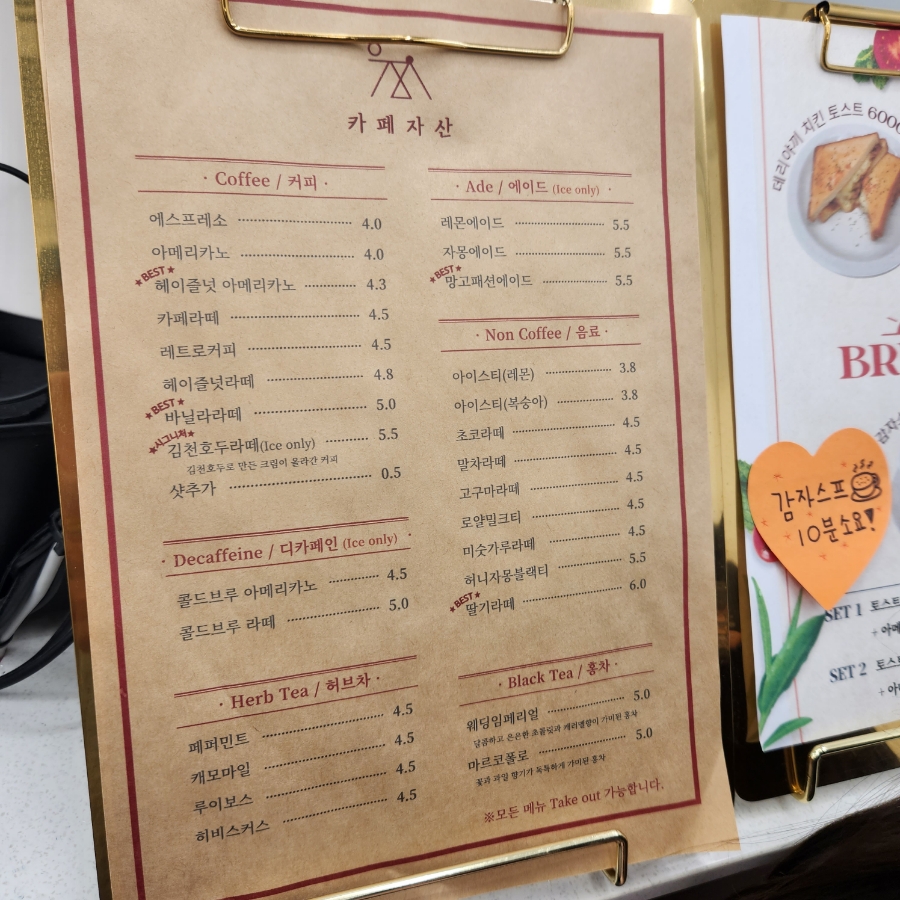 카페자산
· Coffee / 커피 ·
에스프레소 4.0
아메리카노 4.0
★BEST★
헤이즐넛 아메리카노 4.3
카페라떼 4.5
레트로커피 4.5
헤이즐넛라떼 4.8
★BEST★
바닐라라떼 5.0
★시그니처★
김천호두라떼(Ice only) 5.5
김천호두로 만든 크림이 올라간 커피
샷추가 0.5
· Decaffeine / 디카페인 (Ice only) ·
콜드브루 아메리카노 4.5
콜드브루 라떼 5.0
· Herb Tea / 허브차 ·
페퍼민트 4.5
캐모마일 4.5
루이보스 4.5
히비스커스 4.5
· Ade / 에이드 (Ice only) ·
레몬에이드 5.5
자몽에이드 5.5
★BEST★
망고패션에이드 5.5
· Non Coffee / 음료 ·
아이스티(레몬) 3.8
아이스티(복숭아) 3.8
초코라떼 4.5
말차라떼 4.5
고구마라떼 4.5
로얄밀크티 4.5
미숫가루라떼 4.5
허니자몽블랙티 5.5
★BEST★
딸기라떼 6.0
· Black Tea / 홍차 ·
웨딩임페리얼 5.0
달콤하고 은은한 초콜릿과 캐러멜향이 가미된 홍차
마르코폴로 5.0
꽃과 과일 향기가 독특하게 가미된 홍차
※모든 메뉴 Take out 가능합니다.
데리야끼 치킨 토스트 6000
BR
감자스프
10분소요!
SET 1 토스트
SET 2 토스